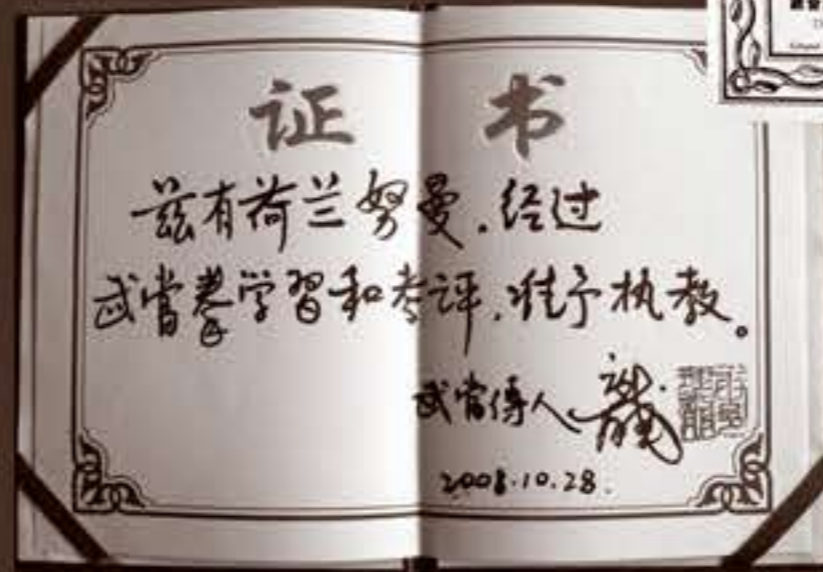 证 书
兹有荷兰努曼.经过
武當拳学習和考评.准予执教。
武當傳人
2008.10.28.